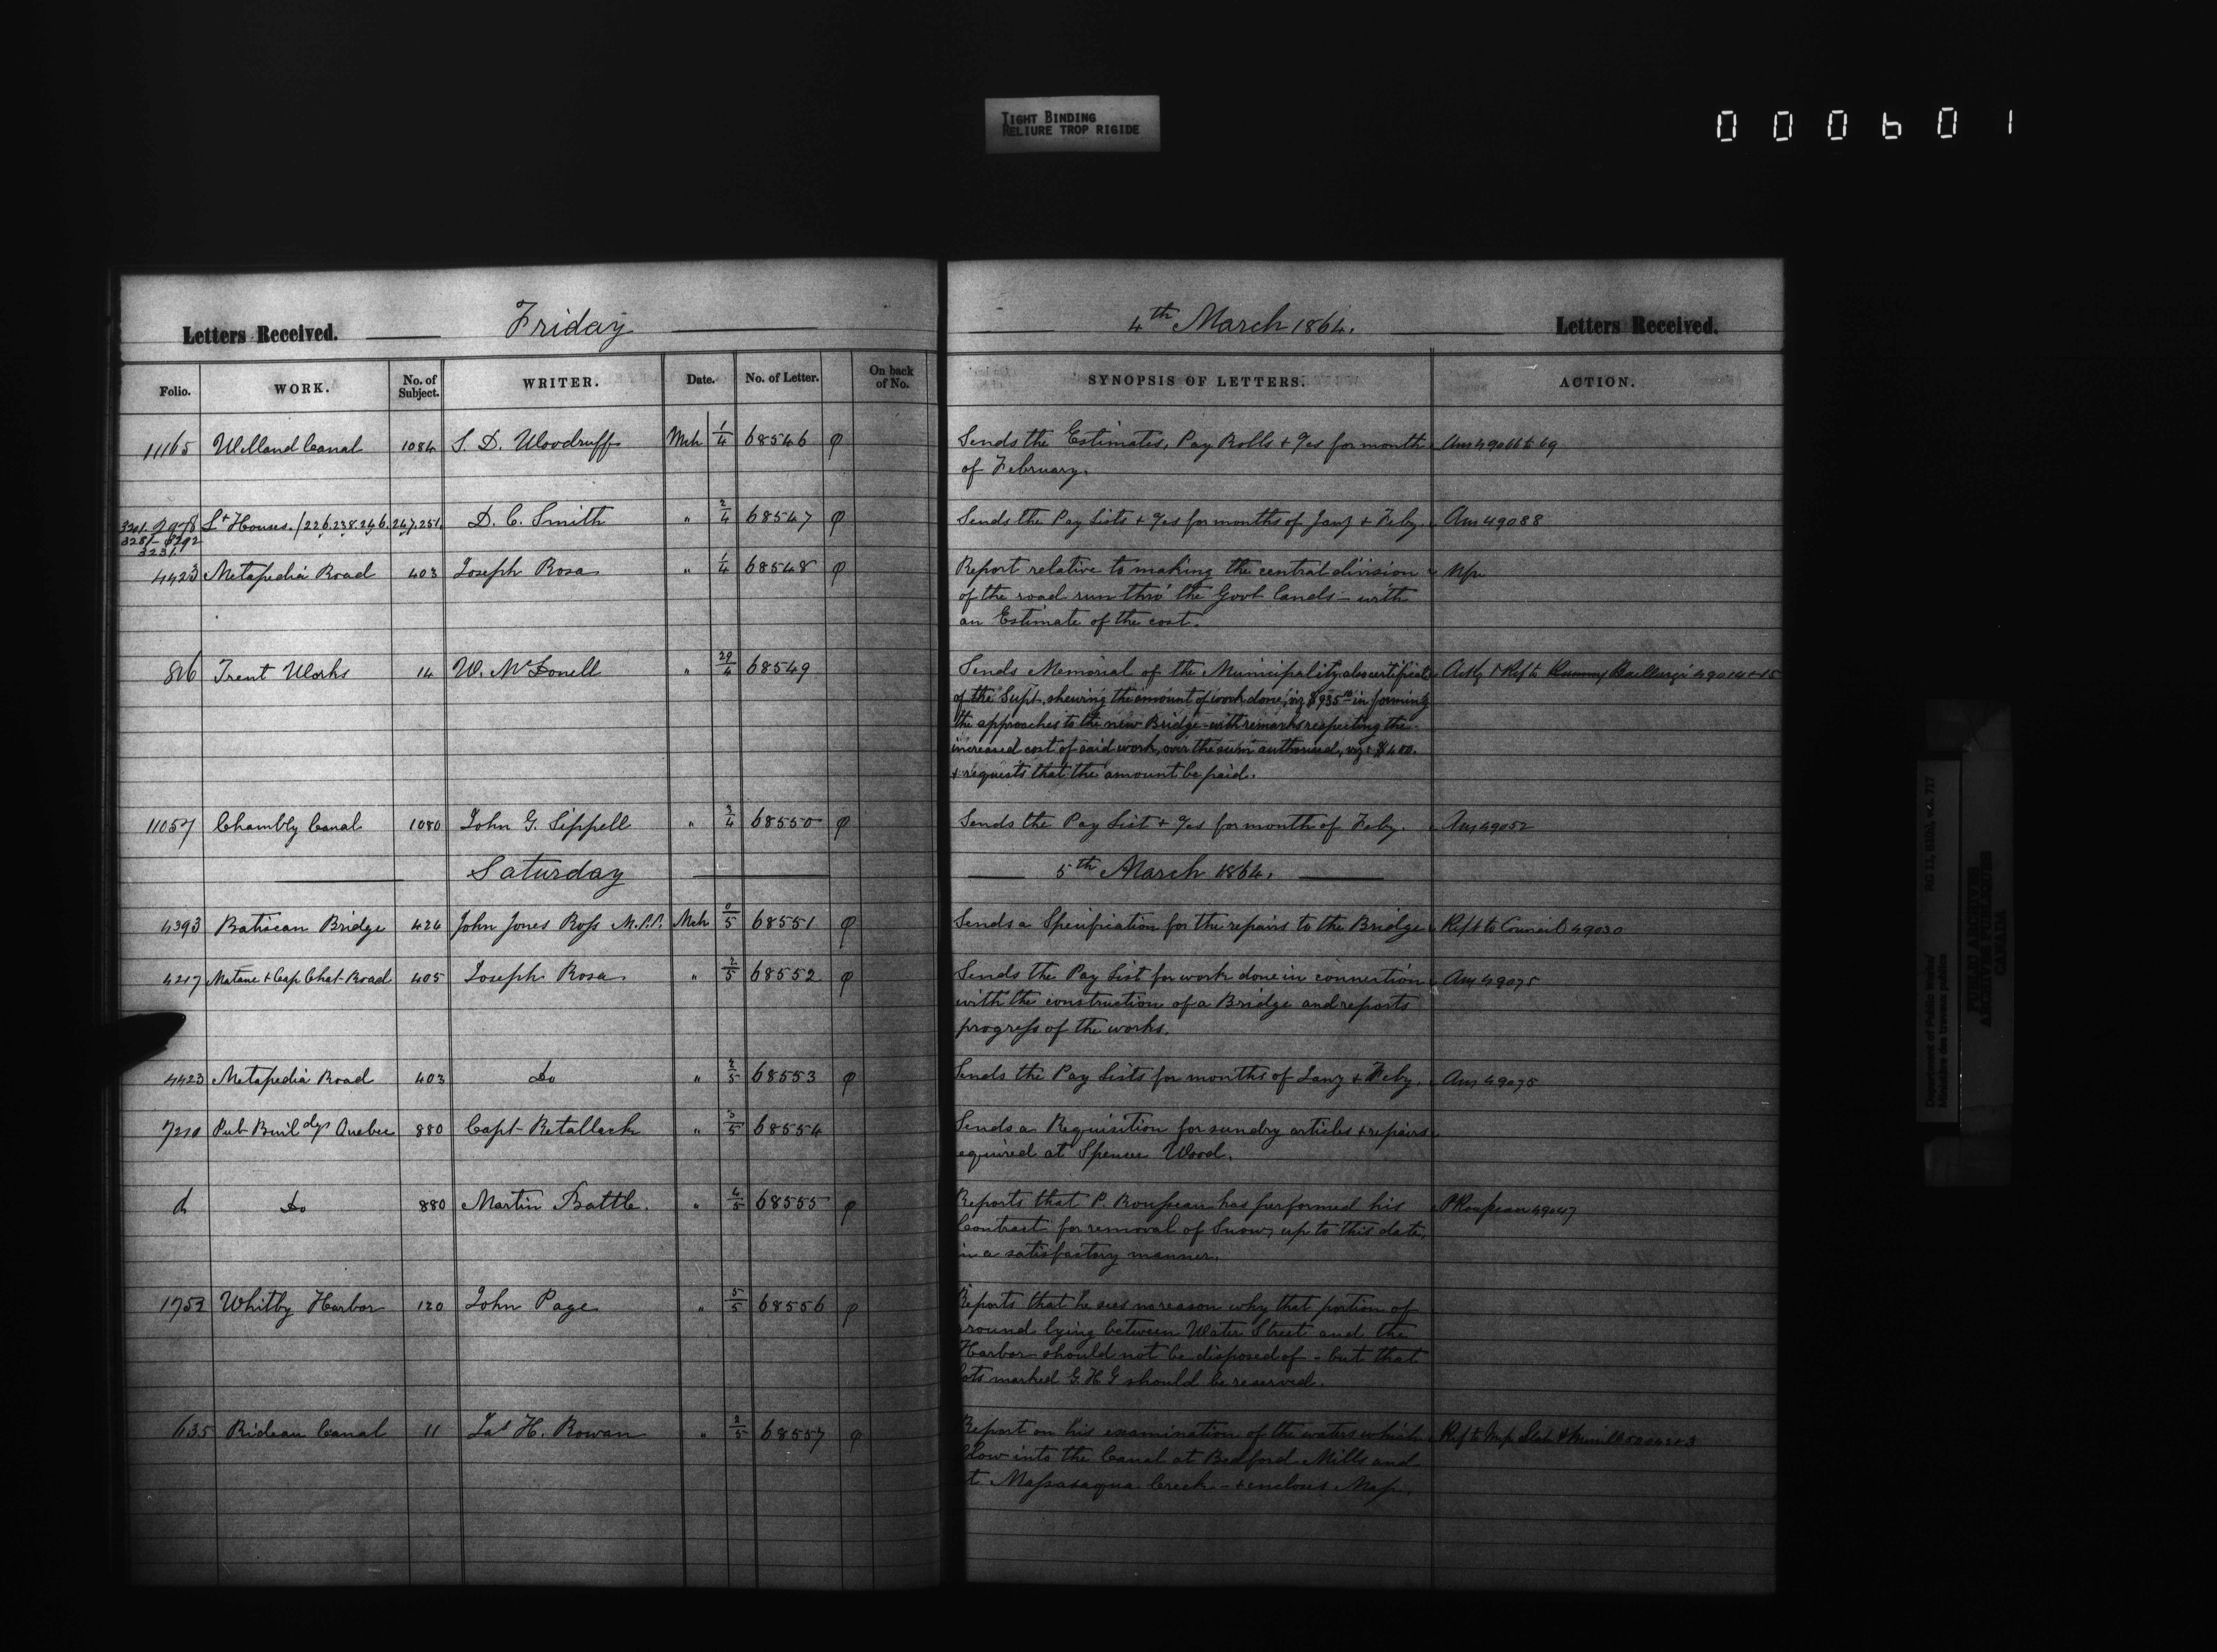 TIGHT BINDING
RELIURE TROP RIGIDE
000601
Letters Received. Friday 4th March 1864. Letters Received.
Folio. WORK. No. of Subject. WRITER. Date. No. of Letter. On back of No. SYNOPSIS OF LETTERS. ACTION.
11165 Welland Canal 1084 S. D. Woodruff Mch 1/4 68546 φ Sends the Estimates, Pay Rolls + %s for month
of February.
Lt Houses. /226.238.246.247.251. D. C. Smith " 2/4 68547 φ Sends the Pay Lists + %s for months of Jany + Feby. Ansd 49088
3231.
4423 Metapedia Road 403 Joseph Rosa " 1/4 68548 φ Report relative to making the central division
of the road run thro' the Govt lands - with
an Estimate of the cost.
816 Trent Works 14 W. McDonell " 29/4 68549 Sends Memorial of the Municipality, also certificate
of the Supt. shewing the amount of work done, viz $935 in forming
the approaches to the new Bridge - with remarks respecting the
increased cost of said work, over the sum authorised, viz: $400.
+ requests that the amount be paid.
11057 Chambly Canal 1080 John G. Sippell " 3/4 68550 φ Sends the Pay List + %s for month of Feby. Ansd 49052
Saturday 5th March 1864.
4393 Batiscan Bridge 424 John Jones Ross M.P.P. Mch 0/5 68551 φ Sends a Specification for the repairs to the Bridge Refd to Council 49030
4217 Matane + Cap Chat Road 405 Joseph Rosa " 2/5 68552 φ Sends the Pay List for work done in connection Ansd 49075
with the construction of a Bridge and reports
progress of the works.
4423 Metapedia Road 403 Do " 2/5 68553 φ Sends the Pay Lists for months of Jany + Feby. Ansd 49075
7210 Pub Buildgs Quebec 880 Capt Retallack " 3/5 68554 Sends a Requisition for sundry articles + repairs
equired at Spencer Wood.
do Do 880 Martin Battle. " 4/5 68555 φ Reports that P. Rousseau has performed his P Rousseau 49047
Contract for removal of Snow, up to this date,
in a satisfactory manner.
1752 Whitby Harbor 120 John Page " 5/5 68556 φ Reports that he sees no reason why that portion of
round lying between Water Street and the
Harbor should not be disposed of - but that
lots marked G. H. G should be reserved.
635 Rideau Canal 11 Jas H. Rowan " 2/5 68557 φ Report on his examination of the waters which
flow into the Canal at Bedford Mills and
t Massasaqua Creek - + encloses Map.
Department of Public Works/
Ministère des travaux publics
RG 11, B1(b), vol. 717
PUBLIC ARCHIVES
ARCHIVES PUBLIQUES
CANADA